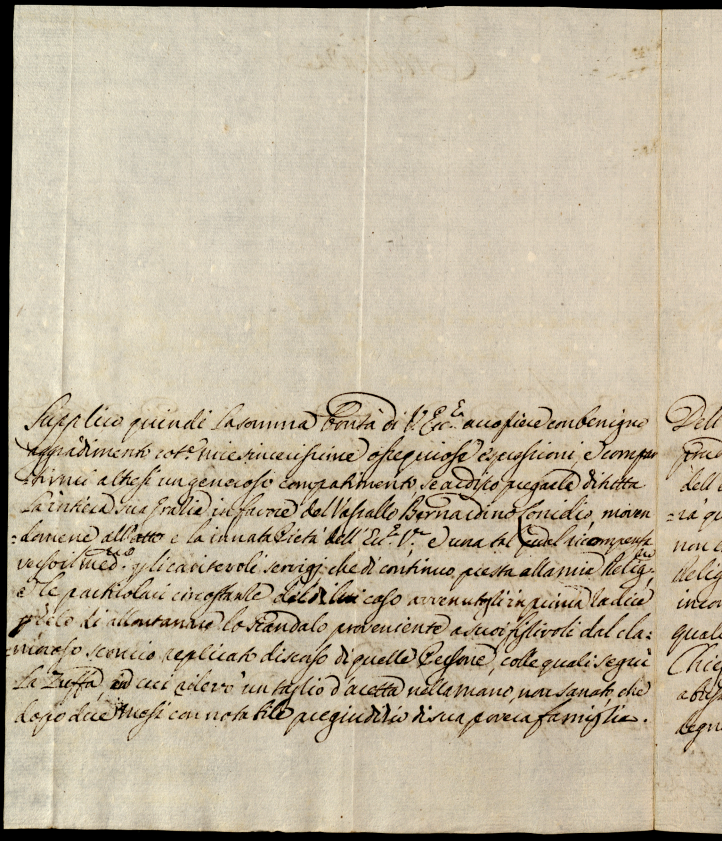 Supplico quindi la somma Bontà di V. Ecc.ª accogliere con benigno
aggradimento coteste mie sincerissime ossequiose espressioni, e compar-
tirmi altresì un generoso compatimento se ardisco pregarla di tutta
la intiera sua Grazia in favore del Vassallo Bernardino Conedio, moven
=domene all'atto e la innata Pietà dell'Ecc.ª V.ª e una tal qual ricompensa
verso il med.mo p li caritevoli servigj che di continuo presta alla mia Relig.ne
e le particolari circostanze del di lui caso avvenutogli in prima radice
zelo di allontanare lo scandalo proveniente a suoi figlivoli dal cla=
=moroso sconcio replicato discorso di quelle Persone, colle quali seguì
la Zuffa, ed ecci rilevò un taglio d'accetta nella mano, non sanato, che
dopo dieci mesi con notabile pregiudizio di sua povera famiglia.
Dell
dell'
=rà qu
non
Relig
incon
quale
Chie
degn